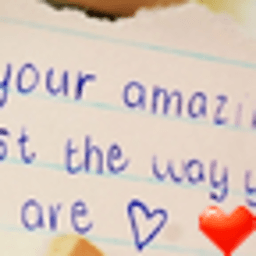 your amazi
st the way y
are ♡